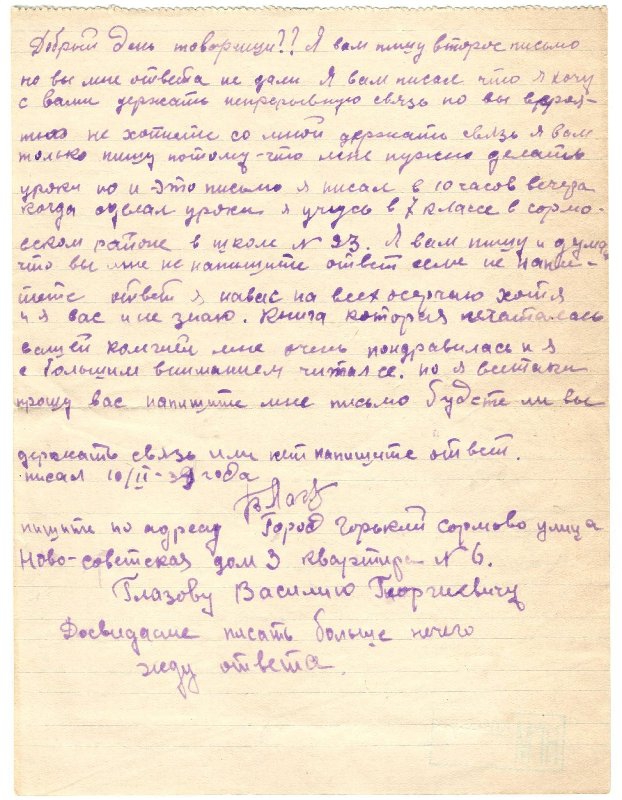 Добрый день товарищи?? Я вам пишу второе письмо
но вы мне ответа не дали Я вам писал что я хочу
с вами держать непрерывную связь но вы вероя-
тно не хотите со мной держать связь я вам
только пишу потому-что мне нужно делать
уроки но и это письмо я писал в 10 часов вечера
когда сделал уроки я учусь в 7 классе в сормо-
вском районе в школе № 23. Я вам пишу и думаю
что вы мне не напишите ответ если не напи-
шете ответ я навас на всех осерчаю хотя
и я вас и не знаю. Книга которая печаталась
вашей комгией мне очень пондравилась и я
с большим вниманием читал се. но я всетаки
прошу вас напишите мне письмо будете ли вы
держать связь или нет напишите ответ.
писал 10/II-39 года
пишите по адресу Город Горький сормово улица
Ново-советская дом 3 квартира № 6.
Глазову Василию Георгиевичу
Досвидание писать больше нечего
жду ответа.